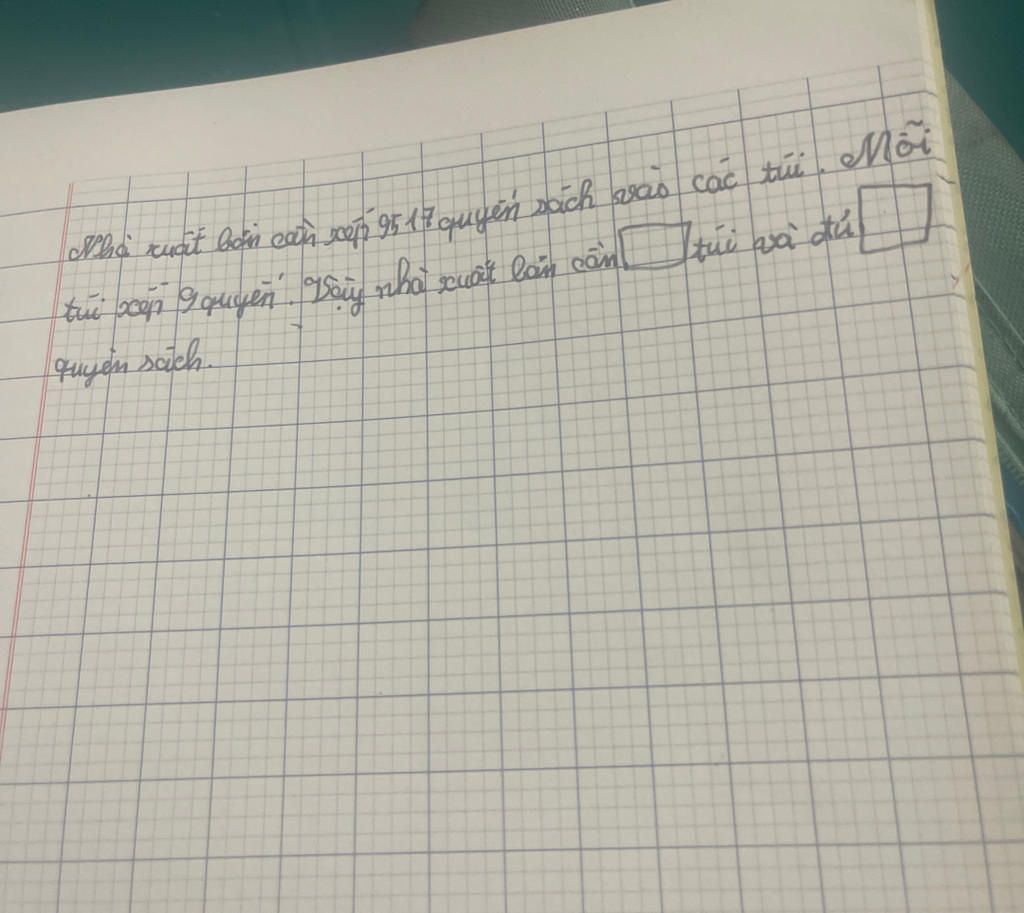 Nhà xuất bản cần xếp 9517 quyển sách vào các túi. Mỗi
túi xếp 9 quyển. Vậy nhà xuất bản cần túi và dư
quyển sách.